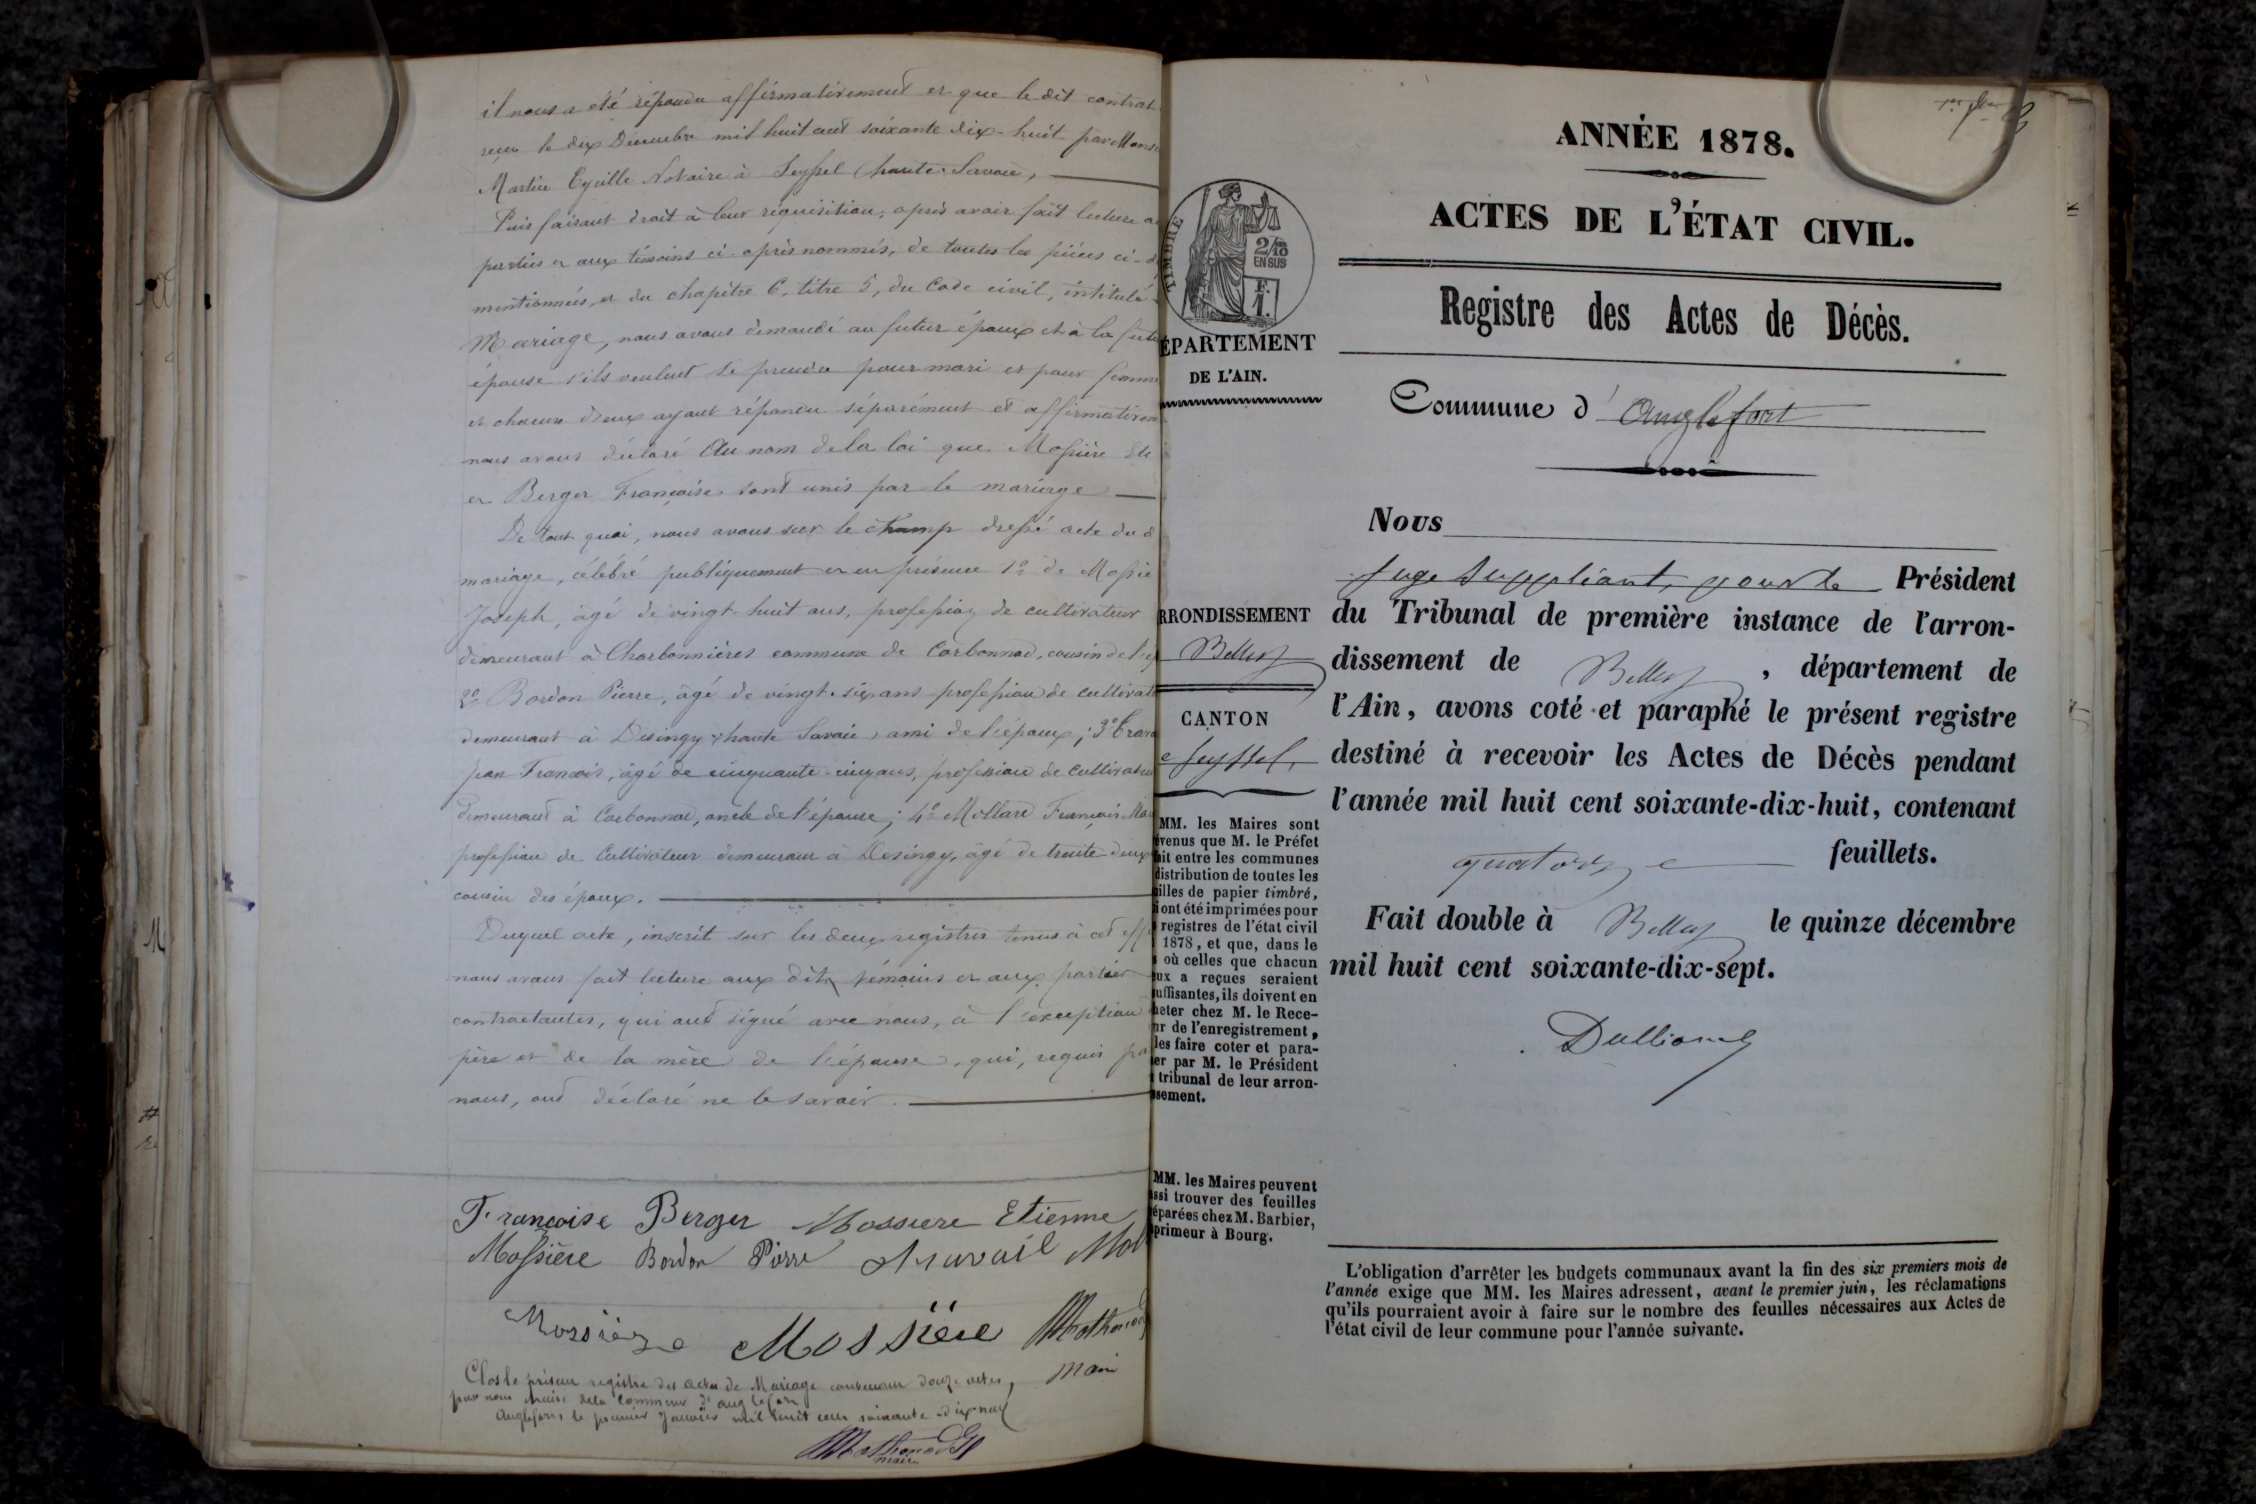 il nous a été répondu affirmativement et que le dit contrat
reçu le dix Décembre mil huit cent soixante dix-huit par Mons
Martin Notaire à Seyssel (haute-Savoie,
Puis faisant droit à leur réquisition, après avoir fait lecture a
parties et aux témoins ci-après nommés, de toutes les pièces ci-d
mentionnées, et du chapitre 6, titre 5, du Code civil, intitulé
Mariage, nous avons demandé au futur époux et à la futu
épouse s'ils veulent se prendre pour mari et pour femme
et chacun d'eux ayant répondu séparément et affirmativem
nous avons déclaré Au nom de la loi que Mossière Eti
et Berger Françoise sont unis par le mariage
De tout quoi, nous avons sur le champ dressé acte du d
mariage, célébré publiquement et en présence 1º de Mossiè
Joseph, âgé de vingt-huit ans, profession de cultivateur
demeurant à Charbonnières commune de Corbonod, cousin de l'é
2º Bordon Pierre, âgé de vingt-six ans profession de cultivat
demeurant à Desingy (haute Savoie) ami de l'époux; 3º Trava
Jean François, âgé de cinquante-cinq ans, profession de cultivateu
demeurant à Corbonod, oncle de l'épouse; 4º Mollard François
profession de Cultivateur demeurant à Desingy, âgé de trente-deux
cousin des époux.
Duquel acte, inscrit sur les deux registres tenus à cet eff
nous avons fait lecture aux dits témoins et aux parties
contractantes, qui ont signé avec nous, à l'exception
père et de la mère de l'épouse, qui, requis pa
nous, ont déclaré ne le savoir.
Françoise Berger Mossiere Etienne
Mossière Bordon Pierre Travail Mol
Mossière Mossière
Maire
Clos le présent registre des actes de Mariage contenant douze actes,
par nous Maire de la Commune d'Anglefort
Anglefort le premier Janvier mil huit cent soixante-dix-neuf
maire
TIMBRE
2/10
EN SUS
F.
1.
ÉPARTEMENT
DE L'AIN.
RRONDISSEMENT
Belley
CANTON
e Seyssel,
MM. les Maires sont
évenus que M. le Préfet
ait entre les communes
distribution de toutes les
uilles de papier timbré,
i ont été imprimées pour
registres de l'état civil
1878, et que, dans le
s où celles que chacun
eux a reçues seraient
suffisantes, ils doivent en
heter chez M. le Rece-
ur de l'enregistrement,
les faire coter et para-
er par M. le Président
tribunal de leur arron-
ssement.
MM. les Maires peuvent
ssi trouver des feuilles
éparées chez M. Barbier,
primeur à Bourg.
ANNÉE 1878.
ACTES DE L'ÉTAT CIVIL.
Registre des Actes de Décès.
Commune d'Anglefort
Nous
Juge Suppléant, pour le Président
du Tribunal de première instance de l'arron-
dissement de Belley, département de
l'Ain, avons coté et paraphé le présent registre
destiné à recevoir les Actes de Décès pendant
l'année mil huit cent soixante-dix-huit, contenant
quatorze feuillets.
Fait double à Belley le quinze décembre
mil huit cent soixante-dix-sept.
L'obligation d'arrêter les budgets communaux avant la fin des six premiers mois de
l'année exige que MM. les Maires adressent, avant le premier juin, les réclamations
qu'ils pourraient avoir à faire sur le nombre des feuilles nécessaires aux Actes de
l'état civil de leur commune pour l'année suivante.